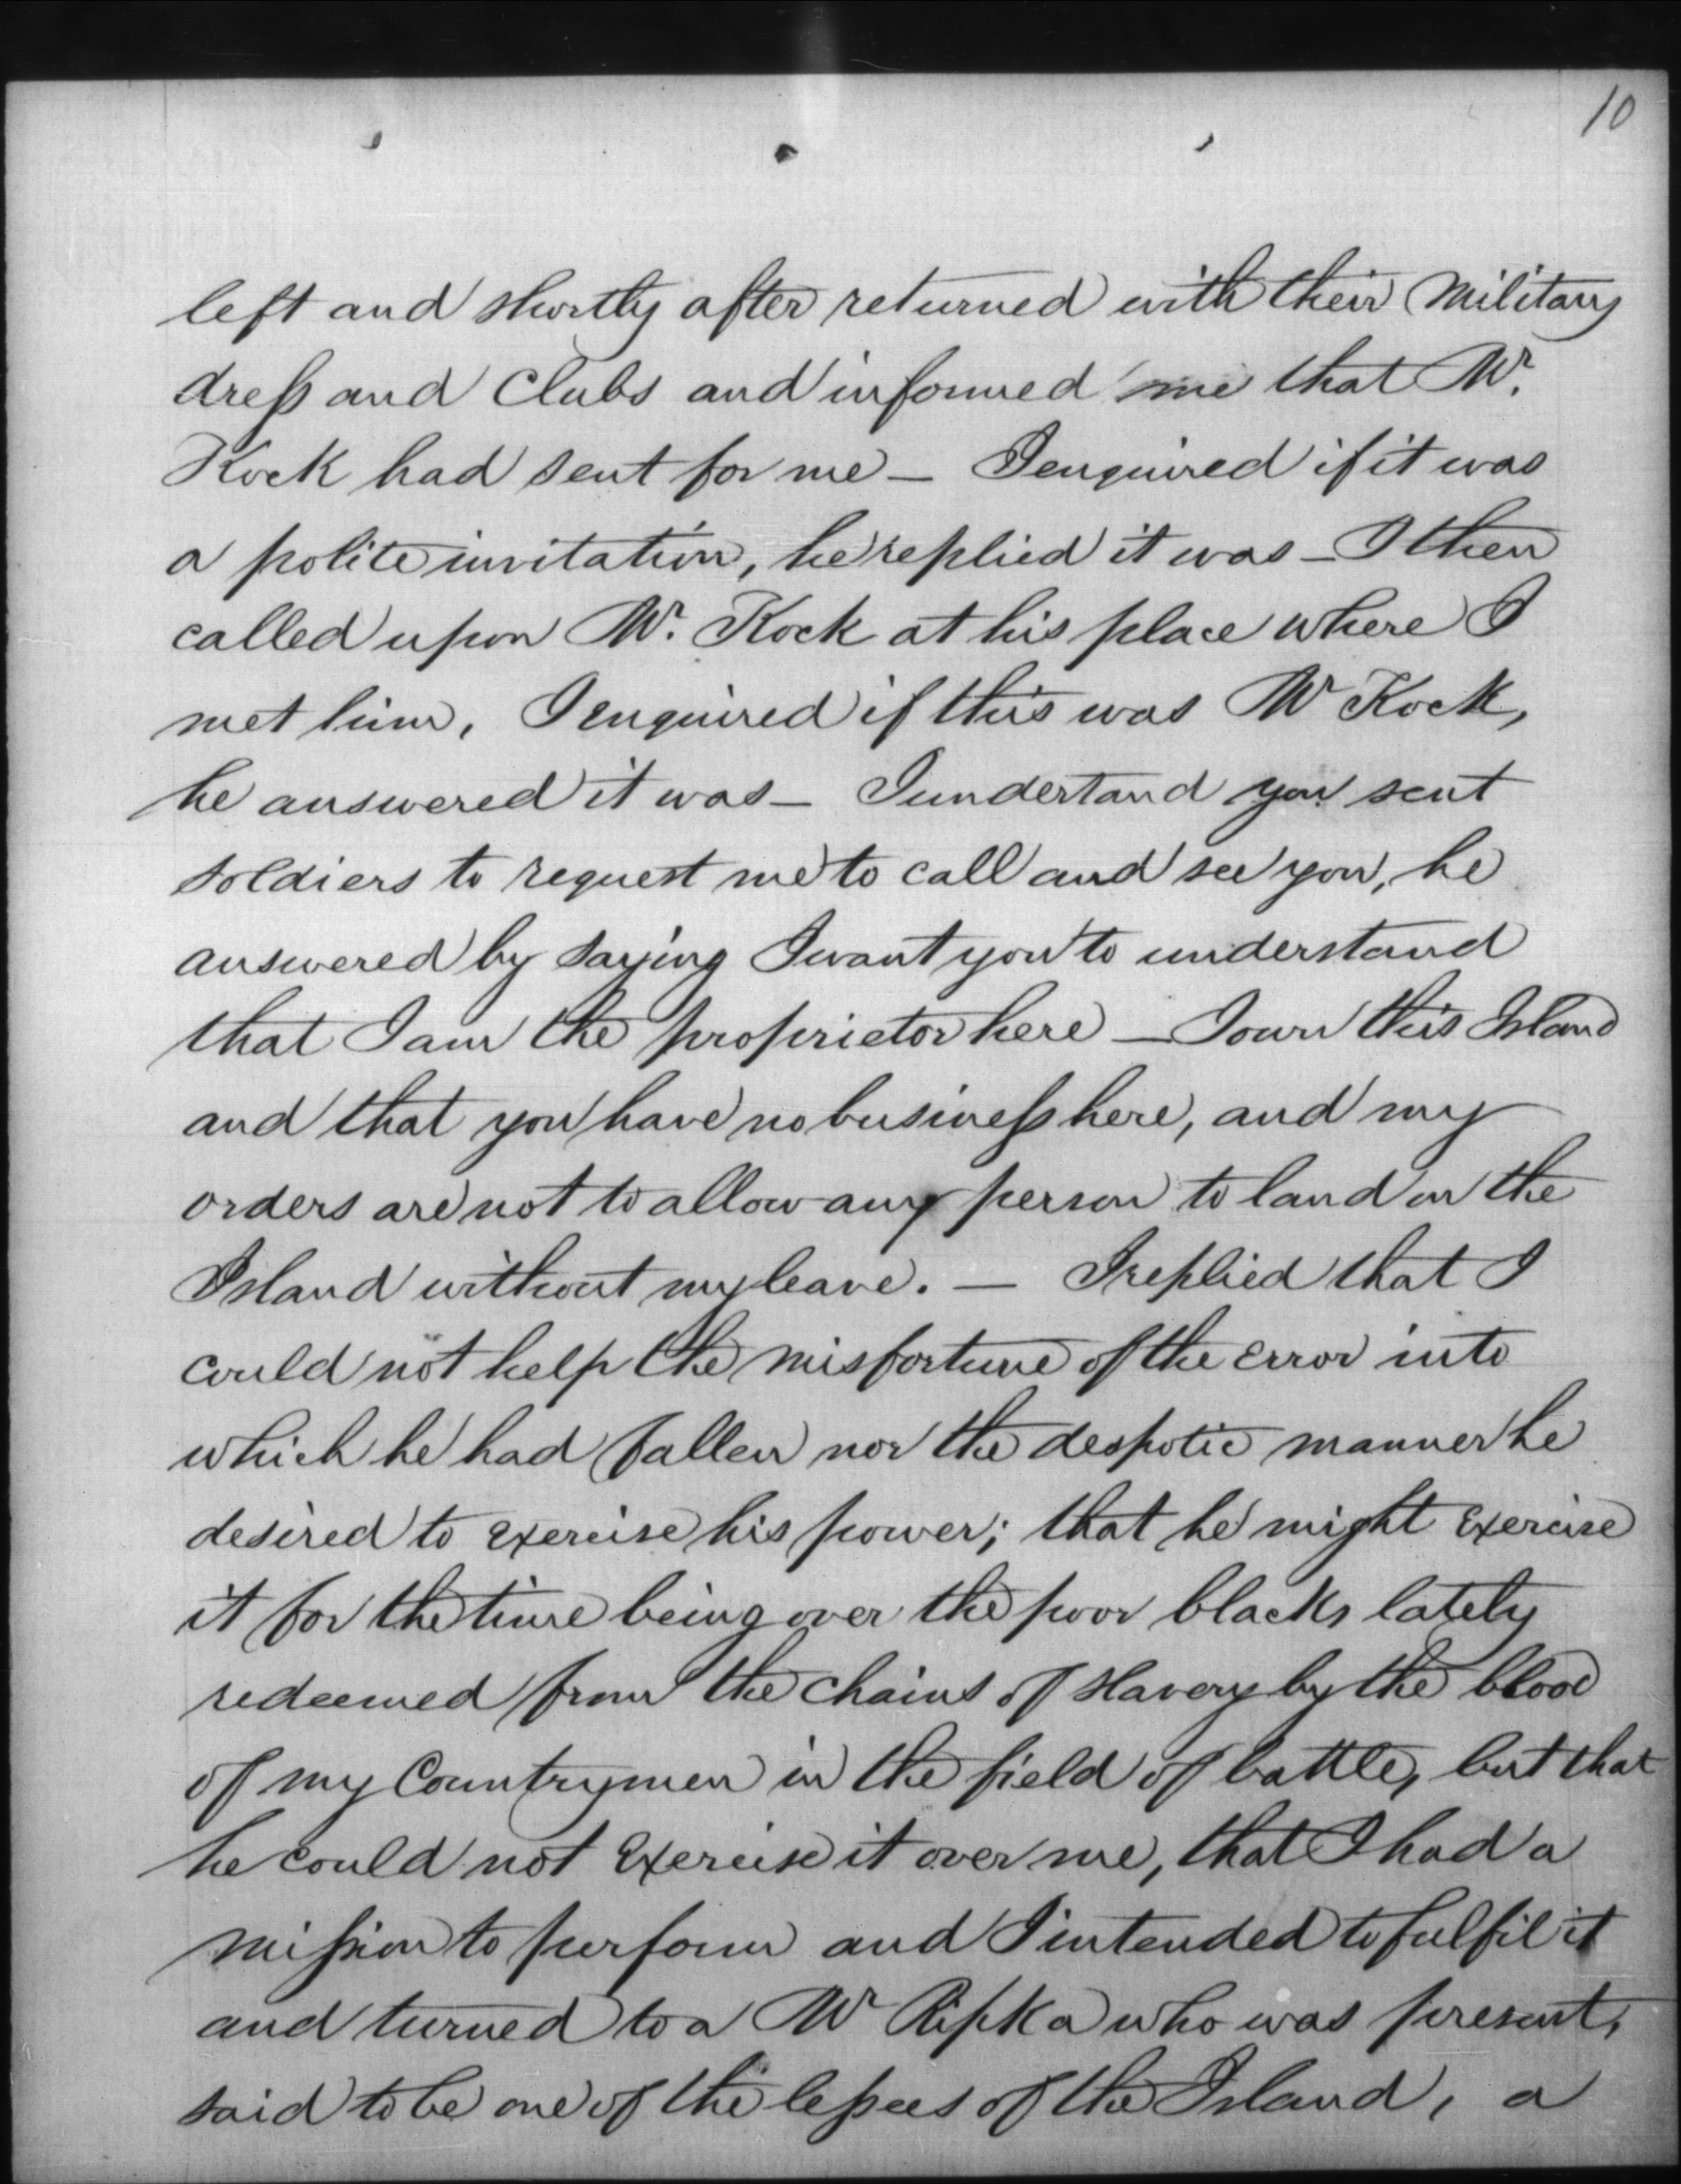 10
left and shortly after returned with their Military
dress and Clubs and informed me that Mr.
Kock had sent for me — I enquired if it was
a polite invitation, he replied it was — I then
called upon Mr. Kock at his place where I
met him, I enquired if this was Mr Kock,
he answered it was — I undertand you sent
soldiers to request me to call and see you, he
answered by saying I want you to understand
that I am the proprietor here — I own this Island
and that you have no business here, and my
orders are not to allow any person to land on the
Island without my leave. — I replied that I
could not help the misfortune of the error into
which he had fallen nor the despotic manner he
desired to exercise his power; that he might exercise
it for the time being over the poor blacks lately
redeemed from the chains of slavery by the blood
of my Countrymen in the field of battle, but that
he could not exercise it over me, that I had a
mission to perform and I intended to fulfil it
and turned to a Mr Ripka who was present,
said to be one of the lessees of the Island, a